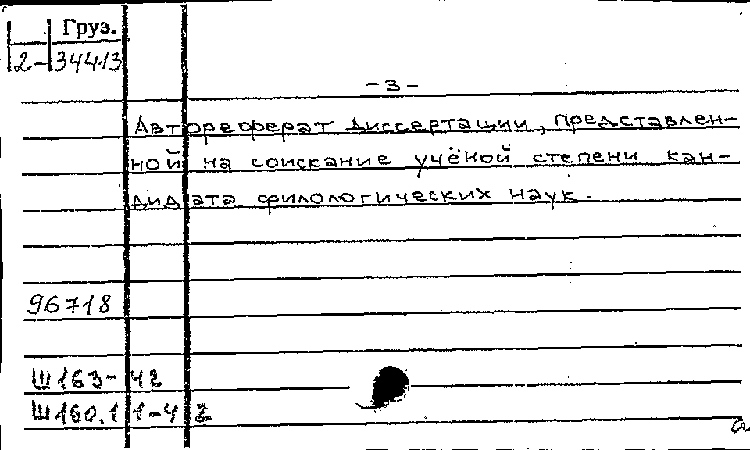 Груз.
2-34413
-3-
Автореферат диссертации, представлен-
ной на соискание учёной степени кан-
дидата филологических наук.
96718
Ш163-42
Ш160.11-42